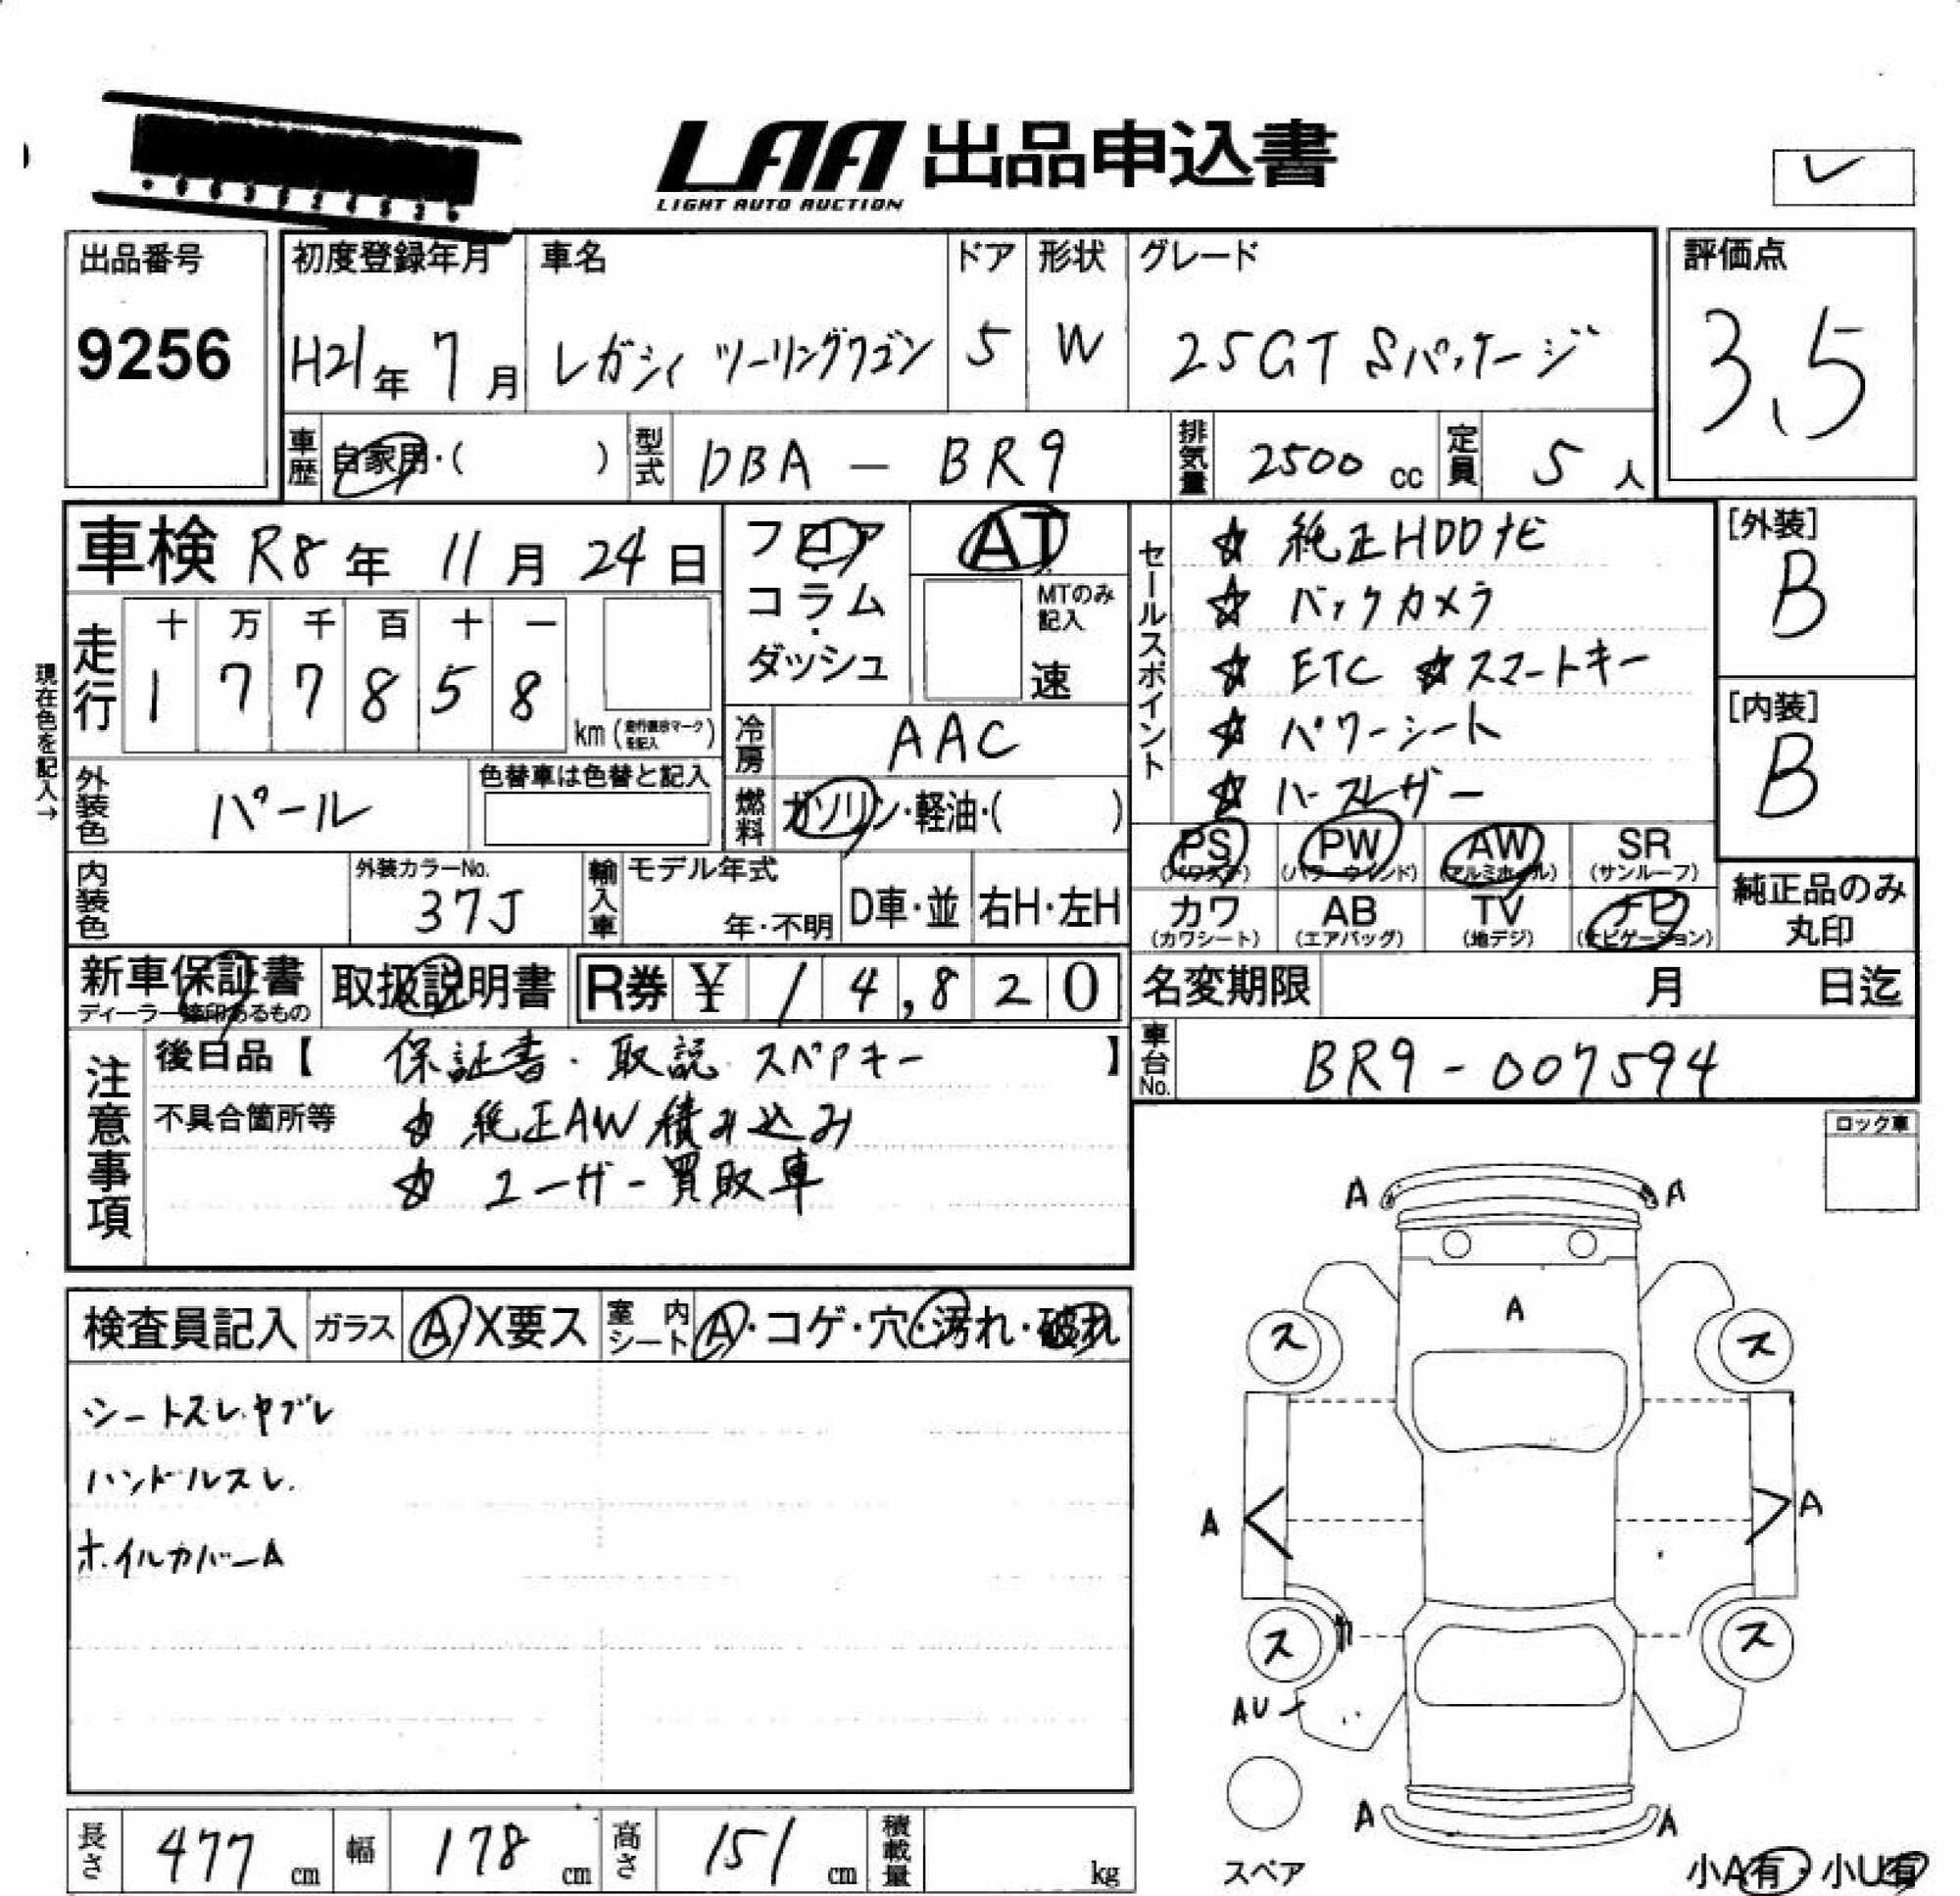 LAA 出品申込書
LIGHT AUTO AUCTION
レ
出品番号
9256
初度登録年月
H21年 7月
車名
レガシィ ツーリングワゴン
ドア
5
形状
W
グレード
25GT Sパッケージ
評価点
3.5
車歴 自家用・( )
型式 DBA - BR9
排気量 2500 cc
定員 5 人
車検 R8年 11月 24日
フロア・コラム・ダッシュ
AT
MTのみ記入
速
走行
十 万 千 百 十 一
1 7 7 8 5 8
km
現在色を記入→
冷房 AAC
燃料 ガソリン・軽油・( )
外装色 パール
色替車は色替と記入
内装色
外装カラーNo.
37J
輸入車
モデル年式
年・不明
D車・並
右H・左H
セールスポイント
☆ 純正HDDナビ
☆ バックカメラ
☆ ETC ☆スマートキー
☆ パワーシート
☆ ハーフレザー
[外装]
B
[内装]
B
PS
PW
AW
(アルミホイール)
SR
(サンルーフ)
カワ
(カワシート)
AB
(エアバッグ)
TV
(地デジ)
ナビ
(ナビゲーション)
純正品のみ丸印
新車保証書
取扱説明書
R券 ¥ 14,820
名変期限 月 日迄
車台No. BR9-007594
注意事項
後日品【 保証書・取説 スペアキー 】
不具合箇所等 ☆ 純正AW積み込み
☆ ユーザー買取車
ロック車
検査員記入 ガラス A X要ス 室内シート A・コゲ・穴・汚れ・破れ
シートスレ.ヤブレ
ハンドルスレ.
ホイルカバーA
A A
A
ス ス
A A
ス ス
AU
A A
スペア
小A有・小U有
長さ 477 cm
幅 178 cm
高さ 151 cm
積載量 kg